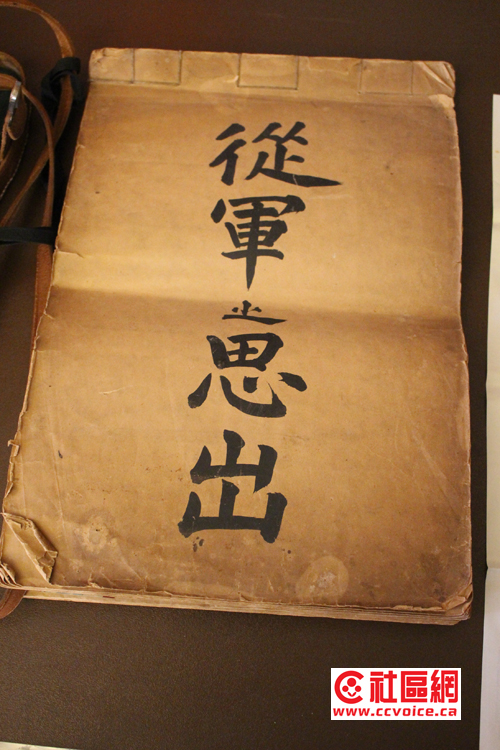 從軍之思出
社區網
www.ccvoice.ca